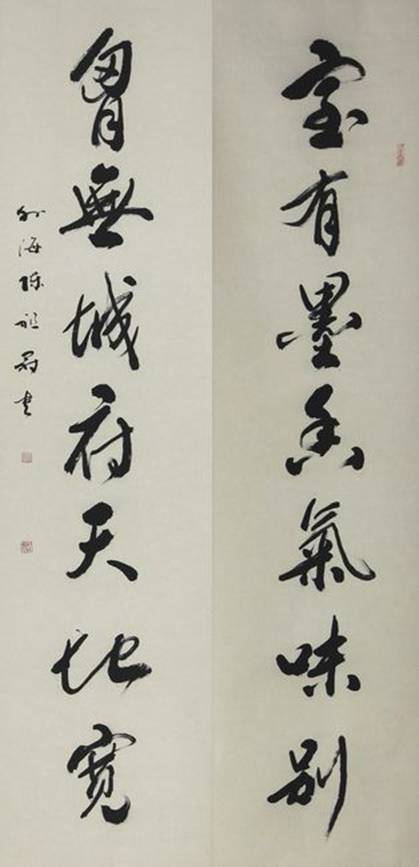 室有墨香氣味別
胷無城府天地寬
外海陳祖羽書